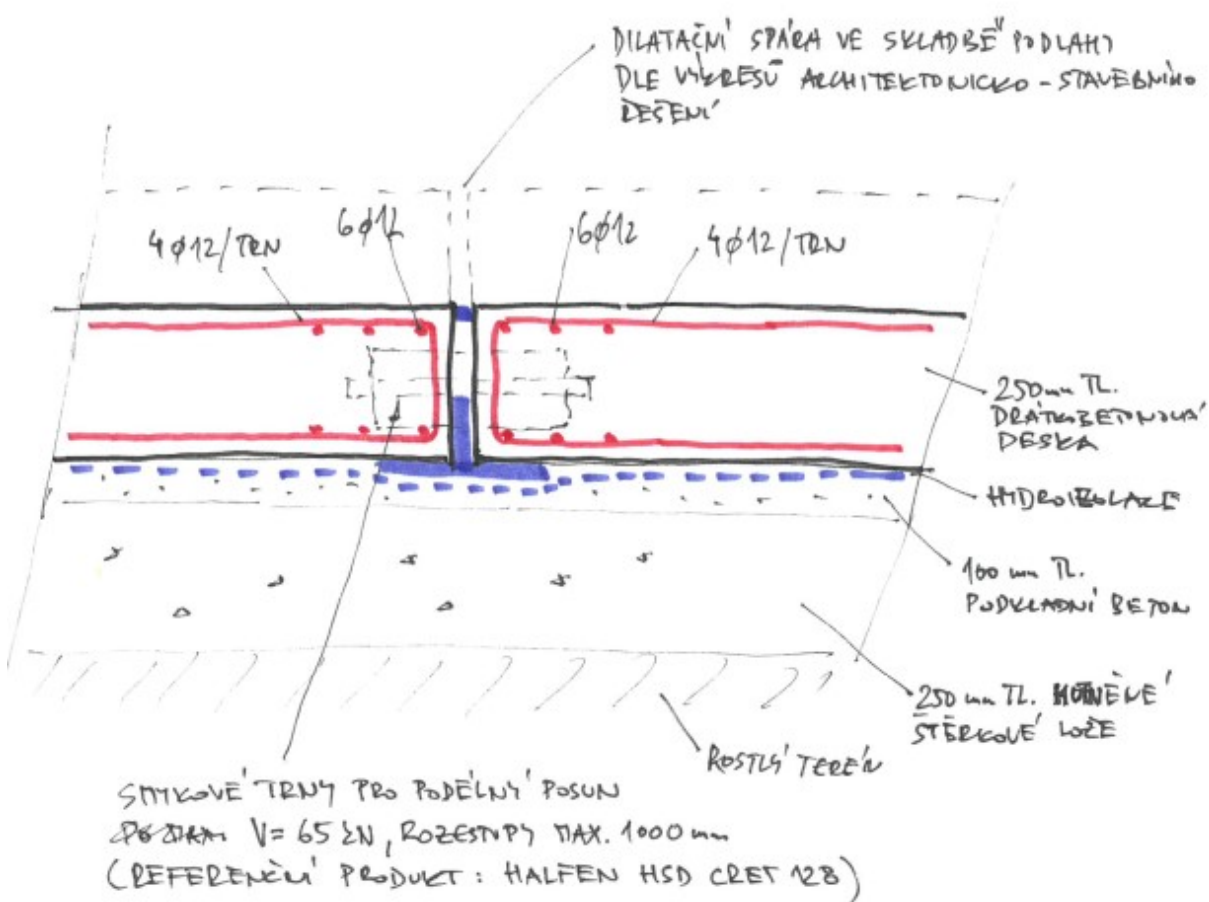 DILATAČNÍ SPÁRA VE SKLADBĚ PODLAHY
DLE VÝKRESŮ ARCHITEKTONICKO - STAVEBNÍHO
ŘEŠENÍ
4ϕ12/TRN
6ϕ12
6ϕ12
4ϕ12/TRN
250mm TL.
DRÁTKOBETONOVÁ
DESKA
HYDROIZOLACE
100 mm TL.
PODKLADNÍ BETON
250 mm TL. HUTNĚNÉ
ŠTĚRKOVÉ LOŽE
ROSTLÝ TERÉN
SMYKOVÉ TRNY PRO PODÉLNÝ POSUN
V= 65 kN, ROZESTUPY MAX. 1000 mm
(REFERENČNÍ PRODUKT : HALFEN HSD CRET 128)